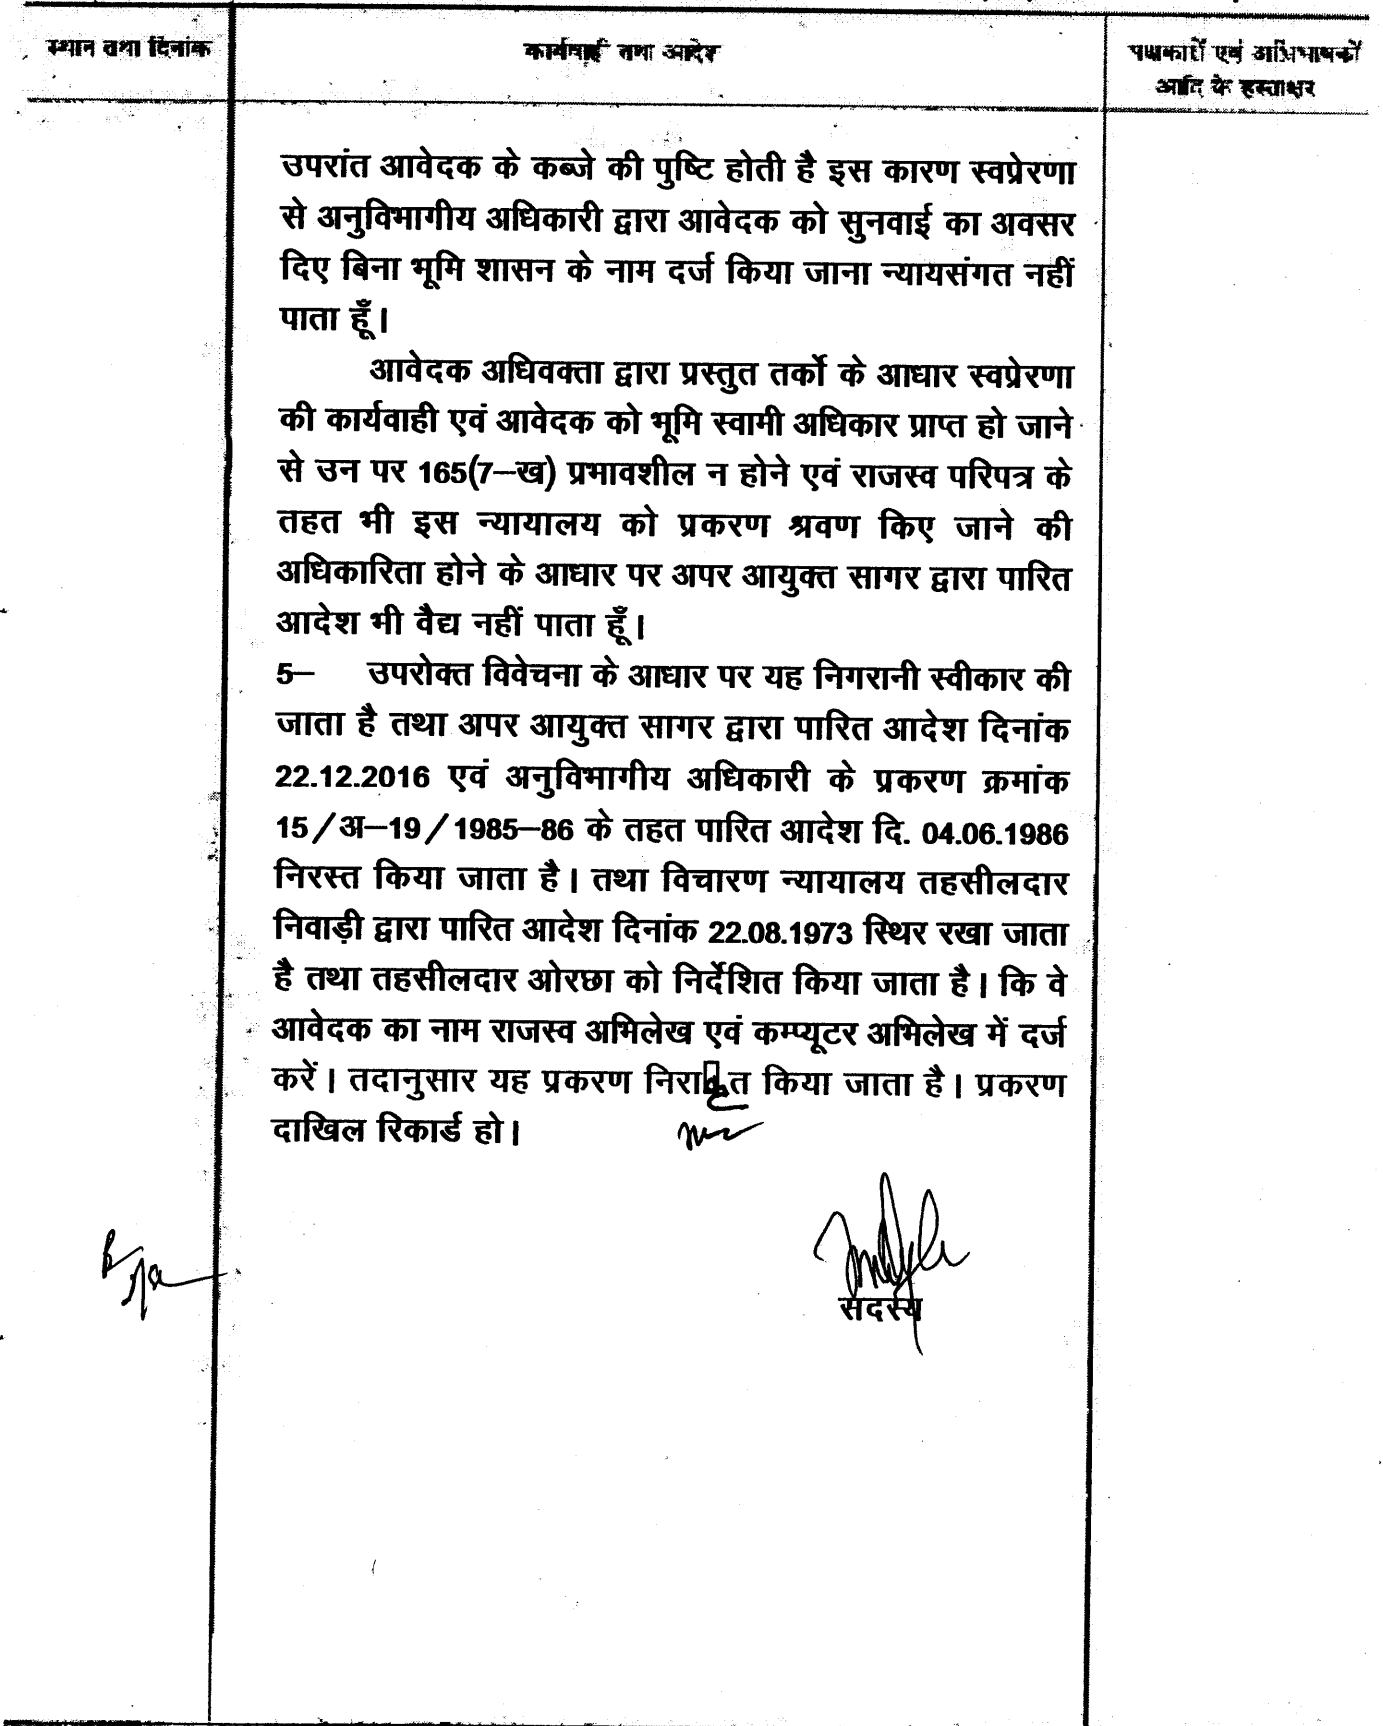 स्थान तथा दिनांक
कार्यवाही तथा आदेश
पक्षकारों एवं अभिभाषकों
आदि के हस्ताक्षर
उपरांत आवेदक के कब्जे की पुष्टि होती है इस कारण स्वप्रेरणा
से अनुविभागीय अधिकारी द्वारा आवेदक को सुनवाई का अवसर
दिए बिना भूमि शासन के नाम दर्ज किया जाना न्यायसंगत नहीं
पाता हूँ।
आवेदक अधिवक्ता द्वारा प्रस्तुत तर्को के आधार स्वप्रेरणा
की कार्यवाही एवं आवेदक को भूमि स्वामी अधिकार प्राप्त हो जाने
से उन पर 165(7–ख) प्रभावशील न होने एवं राजस्व परिपत्र के
तहत भी इस न्यायालय को प्रकरण श्रवण किए जाने की
अधिकारिता होने के आधार पर अपर आयुक्त सागर द्वारा पारित
आदेश भी वैद्य नहीं पाता हूँ।
5– उपरोक्त विवेचना के आधार पर यह निगरानी स्वीकार की
जाता है तथा अपर आयुक्त सागर द्वारा पारित आदेश दिनांक
22.12.2016 एवं अनुविभागीय अधिकारी के प्रकरण क्रमांक
15/अ–19/1985–86 के तहत पारित आदेश दि. 04.06.1986
निरस्त किया जाता है। तथा विचारण न्यायालय तहसीलदार
निवाड़ी द्वारा पारित आदेश दिनांक 22.08.1973 स्थिर रखा जाता
है तथा तहसीलदार ओरछा को निर्देशित किया जाता है। कि वे
आवेदक का नाम राजस्व अभिलेख एवं कम्प्यूटर अभिलेख में दर्ज
करें। तदानुसार यह प्रकरण निराकृत किया जाता है। प्रकरण
दाखिल रिकार्ड हो।
सदस्य